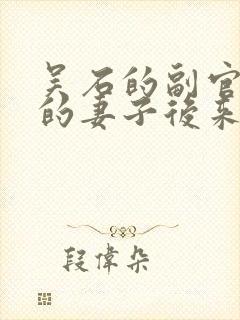 吴石的副官
的妻子後来
段偉朵